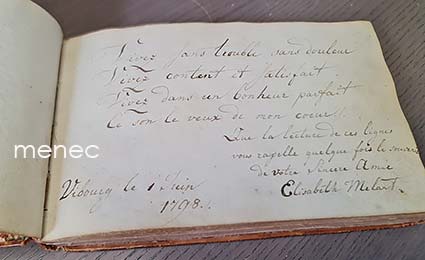 Vivez sans trouble sans douleur
Vivez content et satisfait.
Vivez dans un bonheur parfait
Ce son le veux de mon coeur!.
Que la lecture de ces lignes
vous rapelle quelque fois le souvenir
de votre Sincere Amie
Elisabeth Melart.
Vibourg le 1 Juin
1798.
menec